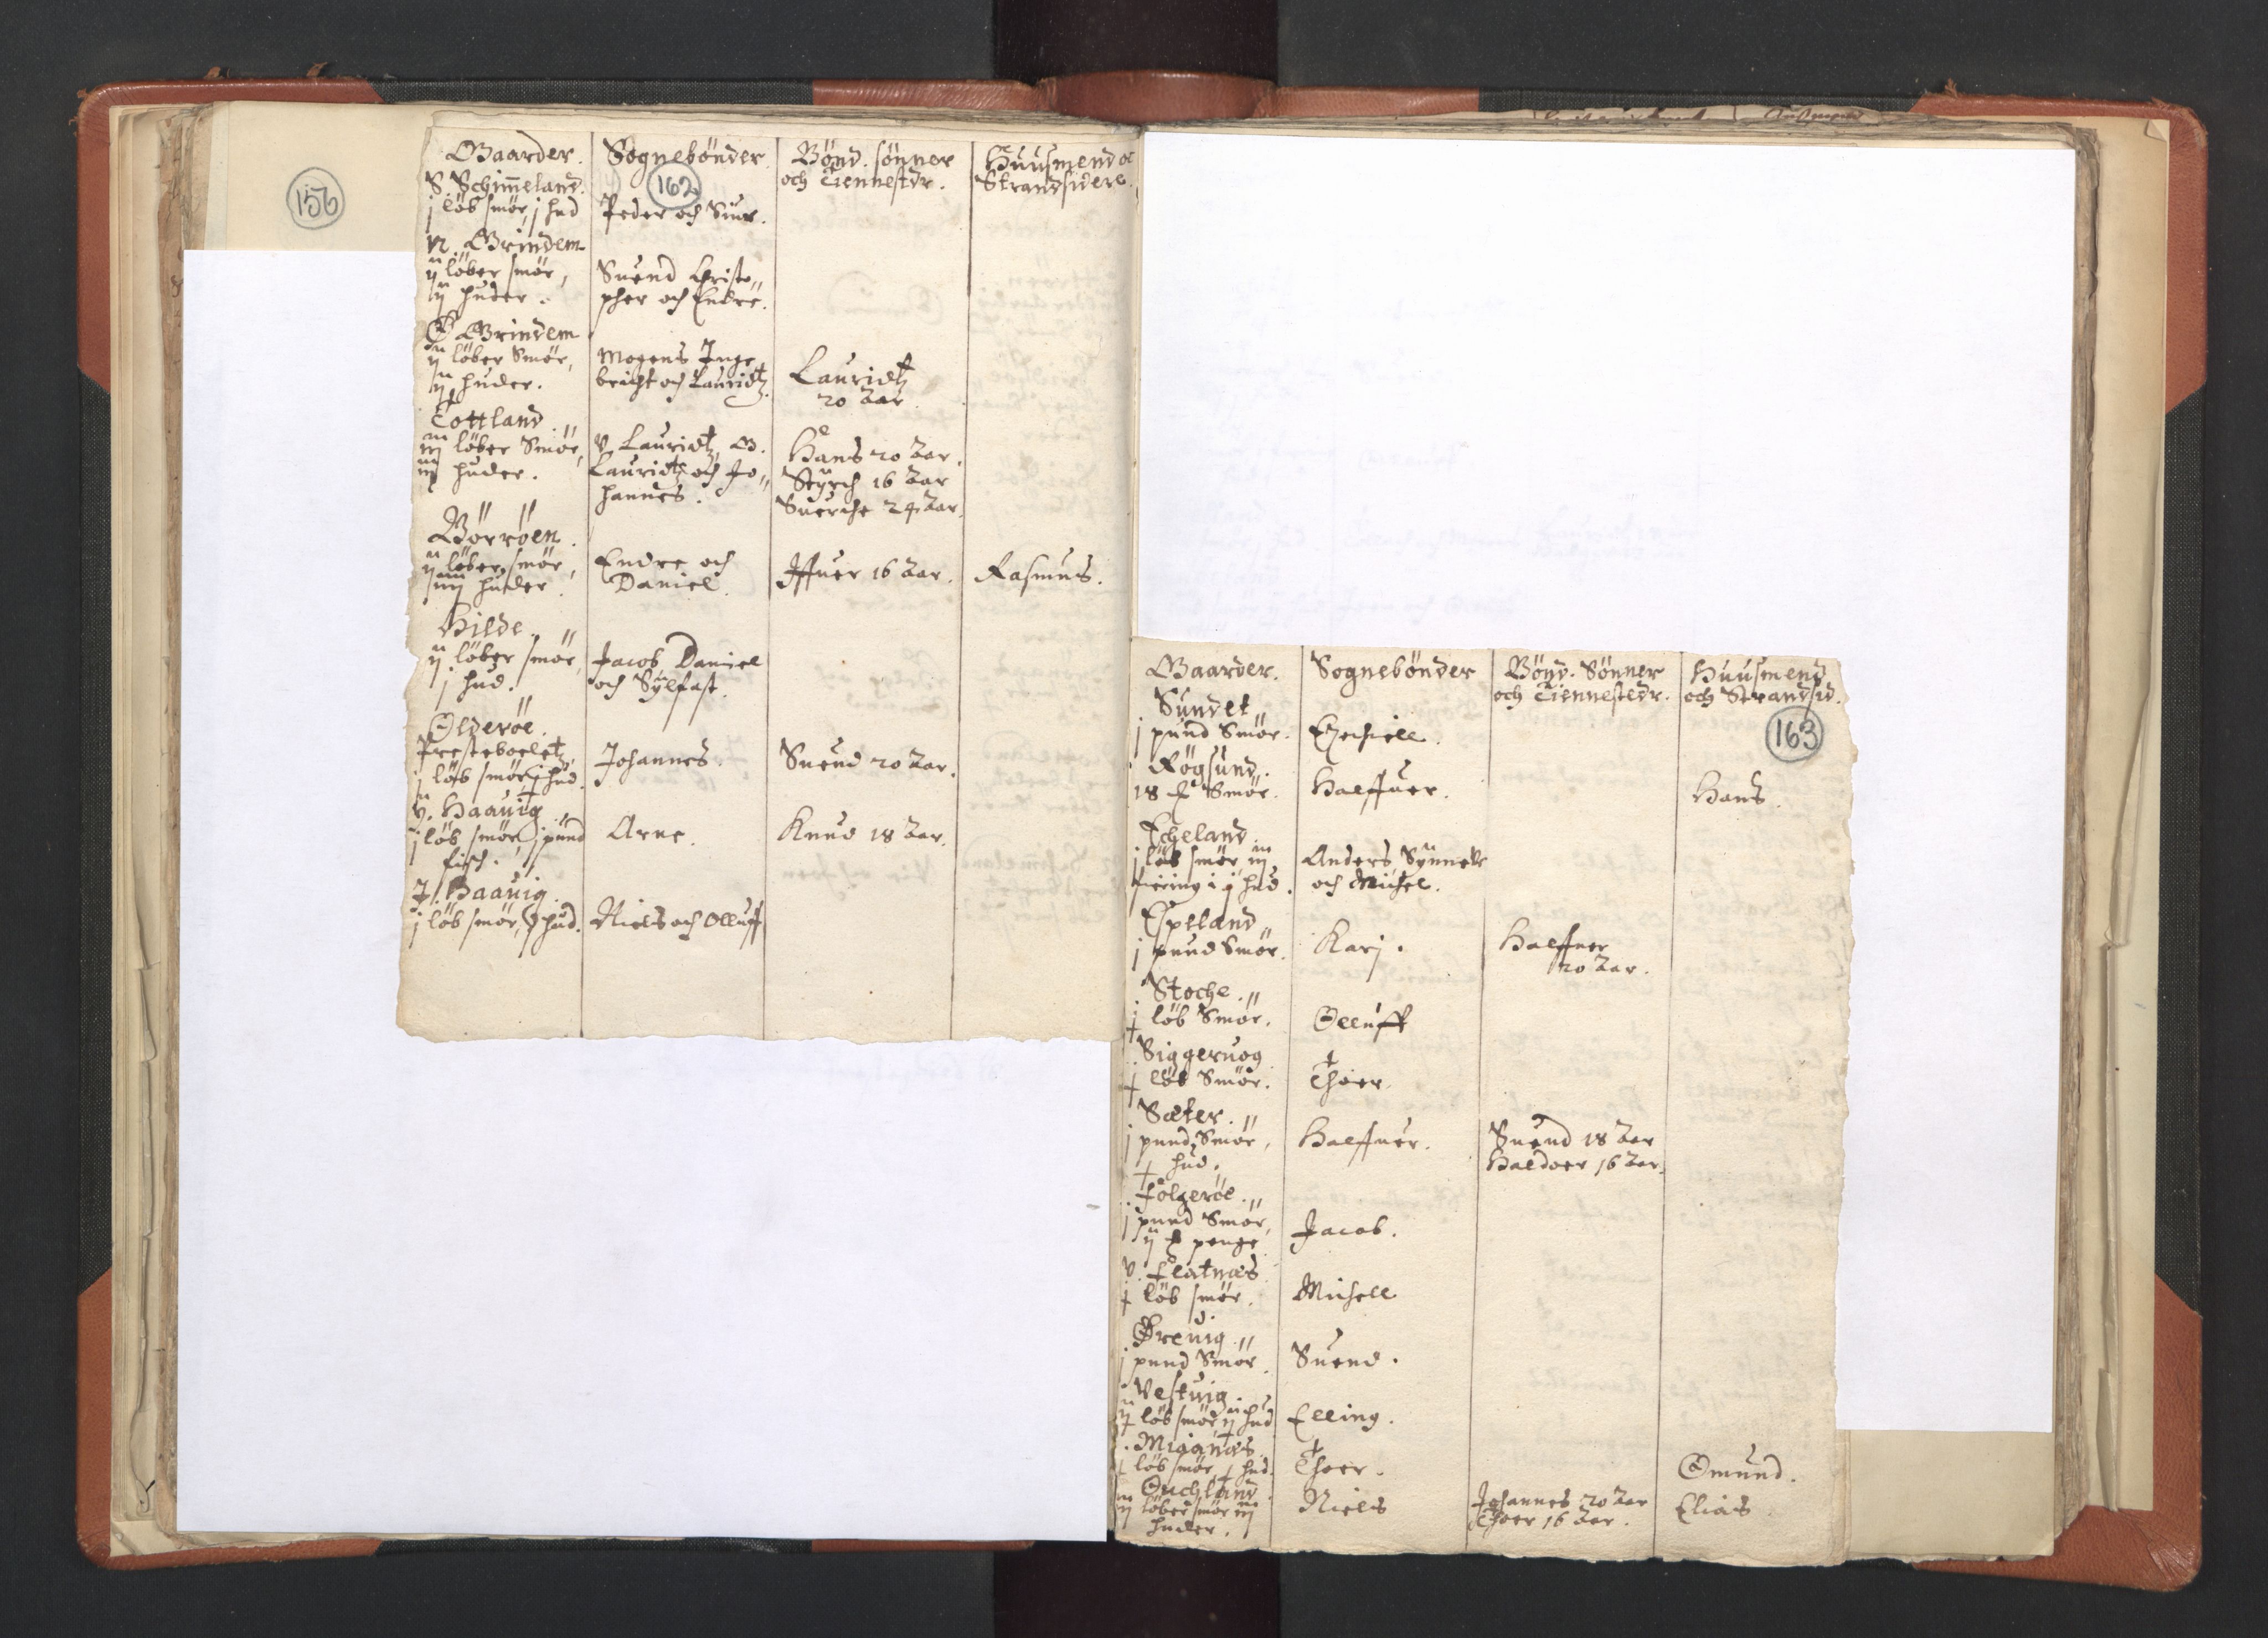 156
Gaarder.
Sognebönder
Bönd. sönner
och Tiennestdr.
Huusmend oc
Strandsidere.
162
S. Schimeland.
j löb smör, j hud
Peder och Siur.
N. Grindem
ij löber smör,
ij huder.
Suend Christo„
pher och Endre.
Grindem
ij löber Smör,
ij huder.
Mogens Inge
bricht och Lauridtz.
Lauridtz
20 Aar
Tottland
iij löber Smör,
iij huder.
V. Lauridtz, G.
Lauridtz och Jo„
hannes.
Hans 20 Aar.
Styrch 16 Aar
Suerche 24 Aar.
Börröen.
ij löber smör,
iiij huder.
Endre och
Daniel.
Iffuer 16 Aar.
Rasmus.
Hilde.
ij löber smör,
j hud.
Jacob, Daniel
och Sylfast.
Olderöe.
Presteboelet,
j löb smör, j hud.
Johannes.
Suend 20 Aar.
Y. Haauig
j löb smör, j pund
fisch.
Arne.
Knud 18 Aar.
I. Haauig.
j löb smör, hud.
Niels och Olluff
Gaarder.
Sognebönder
Bönd. Sönner
och Tiennestedr.
Huusmend
och Strandsid.
163
Sundet
j pund Smör.
Ezechiell.
Rögsund.
18 Smör.
Halffuer.
Hans.
Echeland.
j löb smör iij
j hud.
Anders Synneue
och Michel.
Espeland
j pund Smör.
Karj.
Halffuer
20 Aar.
Stoche.
löb Smör.
Olluff
Siggeruog
löb Smör.
Thoer.
Sæter.
j pund Smör,
hud.
Halffuer.
Suend 18 Aar
Haldoer 16 Aar.
Folgeröe.
j pund Smör,
ij penge
Jacob.
V. Flatnæs
löb smör.
Michell
Breuig.
j pund Smör.
Suend.
Vestuig.
löb smör, ij hud
Elling.
Miaanæs.
löb smör, hud.
Thoer.
Omund.
Ouchland
iij löber smör iij
huder.
Niels
Johannes 20 Aar
Thoer 16 Aar.
Elias.